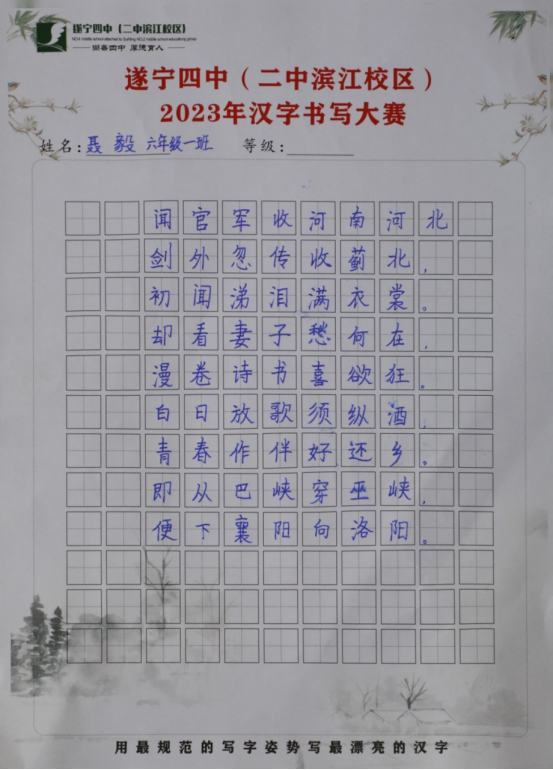 遂宁四中（二中滨江校区）
崇善四中 厚德育人
遂宁四中（二中滨江校区）
2023年汉字书写大赛
姓名：聂毅 六年级一班 等级：
闻官军收河南河北
剑外忽传收蓟北，
初闻涕泪满衣裳。
却看妻子愁何在，
漫卷诗书喜欲狂。
白日放歌须纵酒，
青春作伴好还乡。
即从巴峡穿巫峡，
便下襄阳向洛阳。
用最规范的写字姿势写最漂亮的汉字